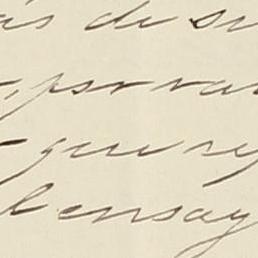 ás de su
por va
que re
el ensay